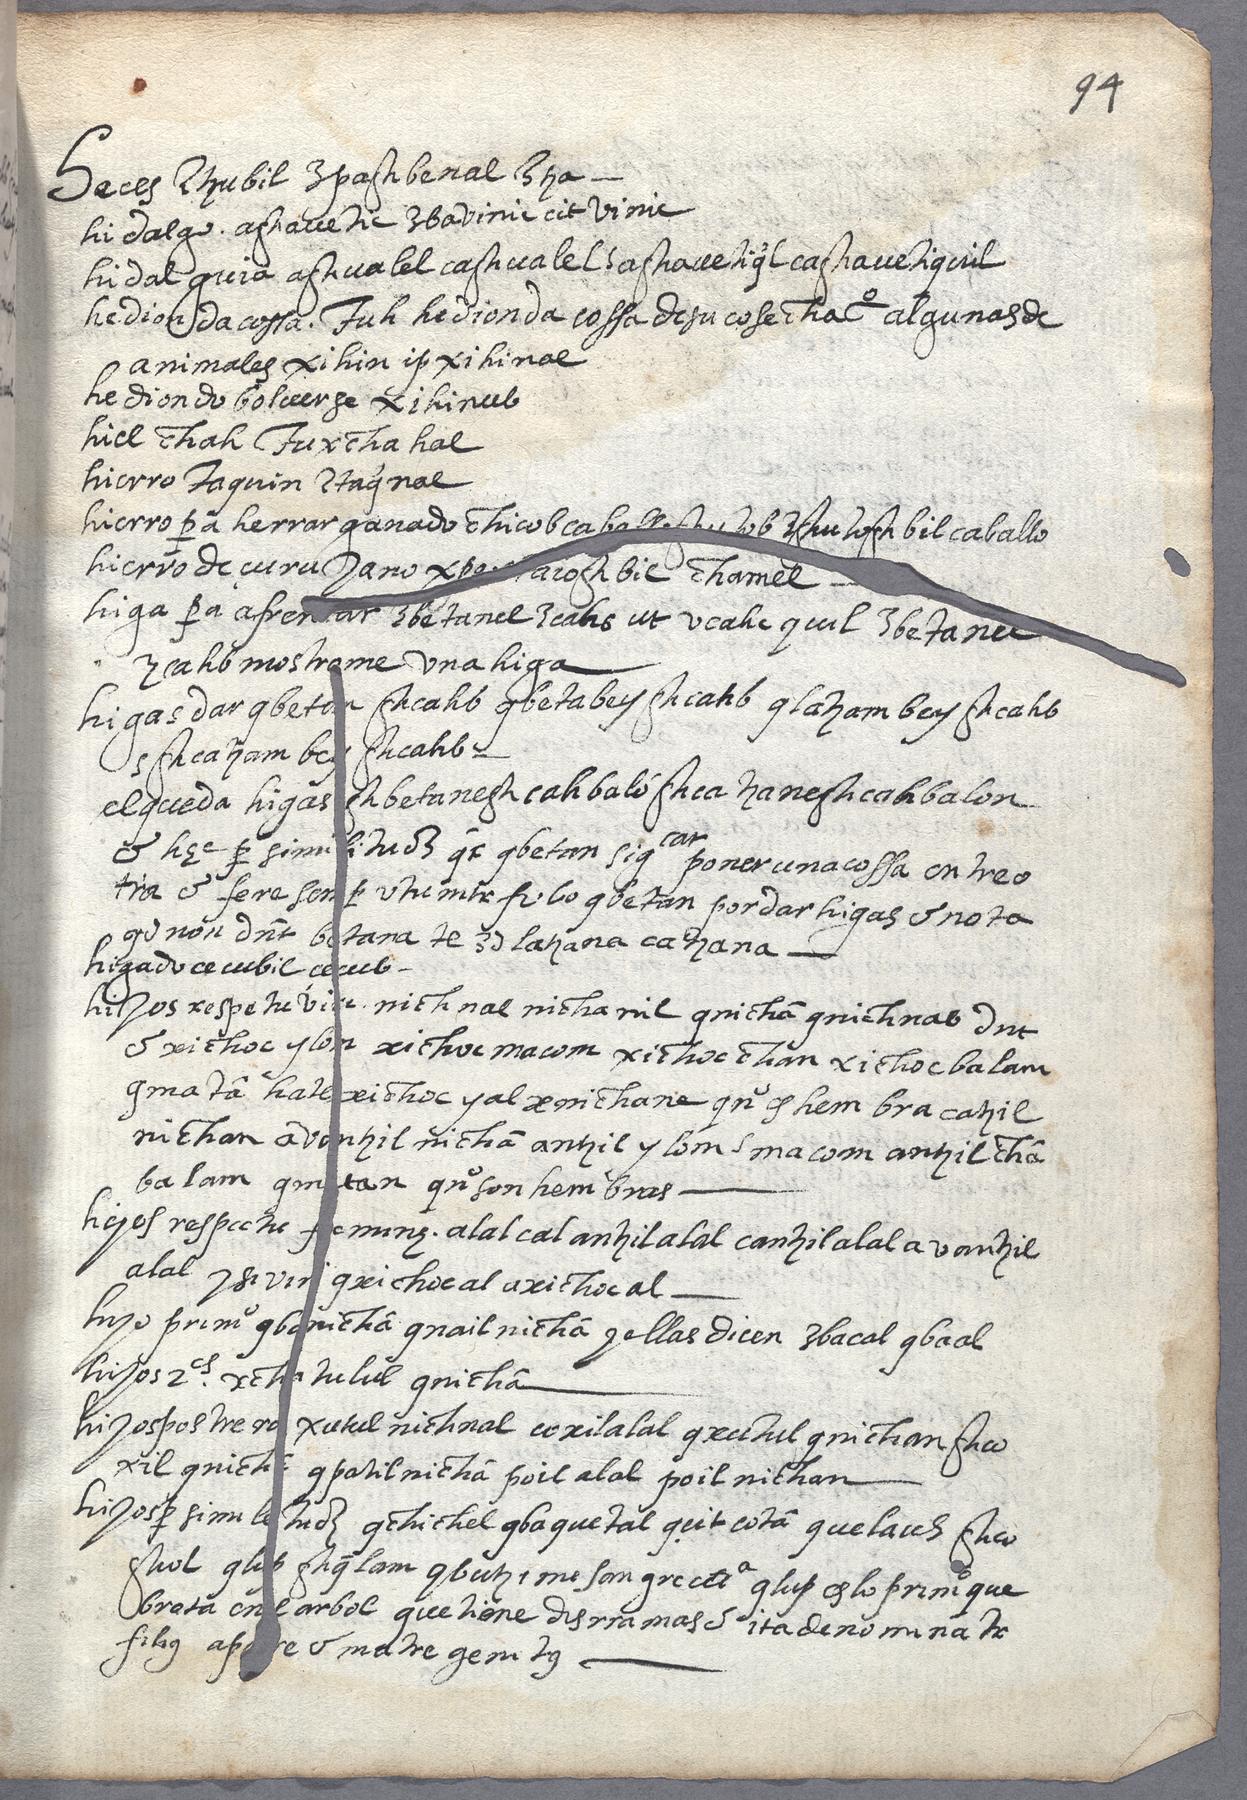 94
Heces ztzubil zpaghbenal ztza
hidalgo. aghauetic zbavinic cit vinic
hidalguia aghualel caghualel s aghauetiqͥl caghauetiquil
hedionda cossa. Tuh hedionda cossa de su cosecha cº algunas de
animales xihin ip xihinal
hediondo bolverse xihinub
hiel chah Tuxchahal
hierro Taquin ztaqͥnal
hierro pa herrar ganado chicob zghutoghbil caballo
hierro de curujano ghbil chamel
higa pa afrentar zbetanel zcahb ut vcahc quil zbetanel
zcahb mostrome vna higa
higas dar qbetan ghcahb qbetabey ghcahb qlatzambey ghcahb
s ghcatzambey ghcahb
el que da higas ghbetanegh cahbaló ghcatzanegh cahbalon
& hȩc ꝑ similitudȝ qͣ qbetan sigcar poner una cossa entre o
tra & fere semꝑ vtuntr solo qbetan por dar higas & nota
qͦ nõn dnt betana te zɔ latzana catzana
higado cecubil cecub
hijos respetu viri nichnal nichanil qnichã qnichnab dnt
& xichoc ylom xichoc macom xichoc chan xichoc balam
qmatã hate xichoc yal xnichane qnͦ es hembra catzil
nichan avantzil nichã antzil ylom s macom antzil chã
balam qmatan qnͦ son hembras
hijos respectu feminȩ. alal cal antzil alal cantzil alal avantzil
alal viri qxichocal axichocal
hijo primͦ qbanichã qnail nichã q ellas dicen zbacal qbaal
hijos 2os. xchatulul qnichã
hijos postrero xutul nichnal coxil alal qxutul qnichan ghco
xil qnichã qpatzil nichã poil alal poil nichan
hijos ꝑ similetudȝ qchichel qbaquetal qcit cotã quelavez ghco
ghol qlup ghqͥlam qbutzi me sangre ettª qlup es lo primͦ que
brota en el arbol que tiene dis rramas & ita denominatr
filiꝯ a patre & matre genitꝯ